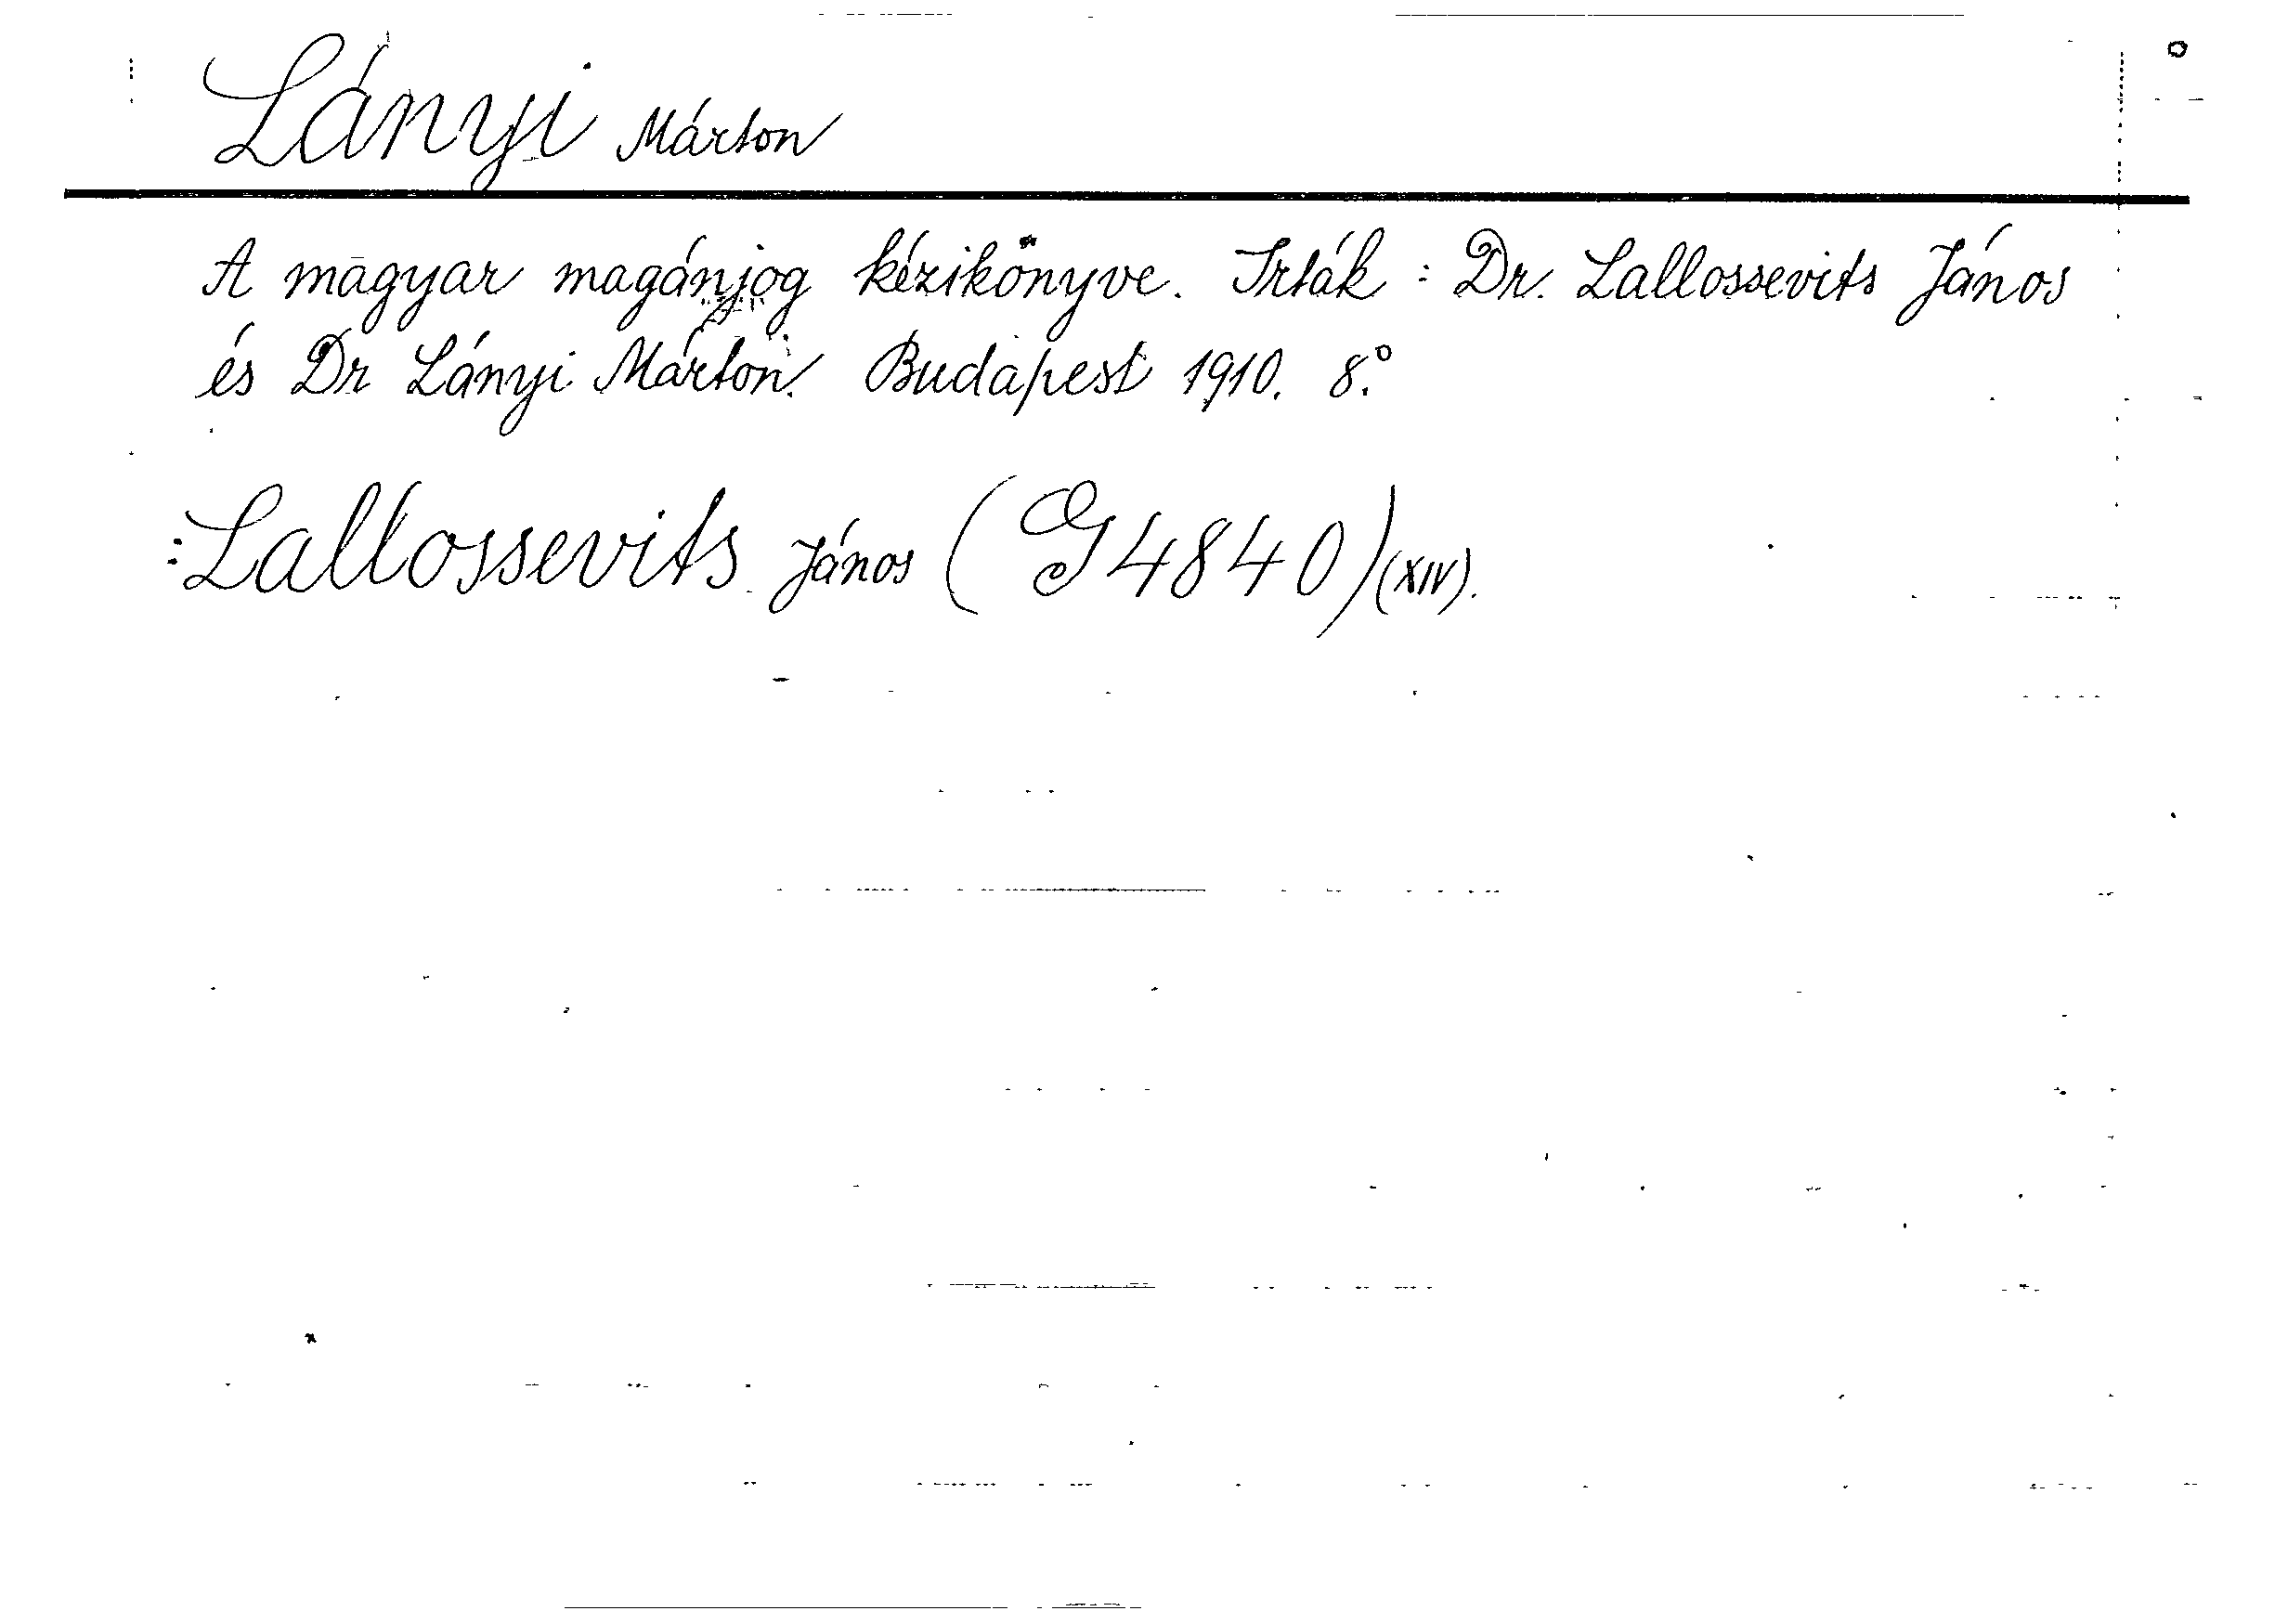 Lányi Márton
A magyar magánjog kézikönyve. Irták: Dr. Lallossevits János
és Dr Lányi Márton. Budapest 1910. 8.°
:Lallossevits János (G 4840) (XIV).